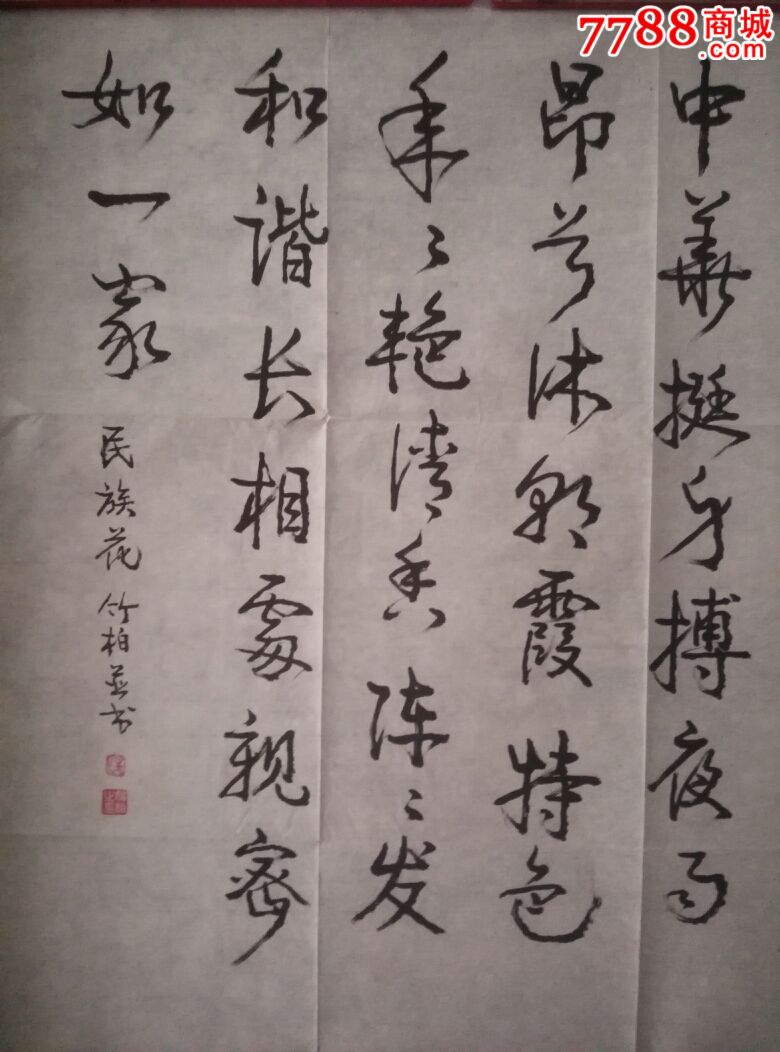 7788商城
.com
中華挺身搏夜雨
昂首沐朝霞特色
朵々艳清香陣々发
和谐长相处亲密
如一家
民族花 竹柏并书